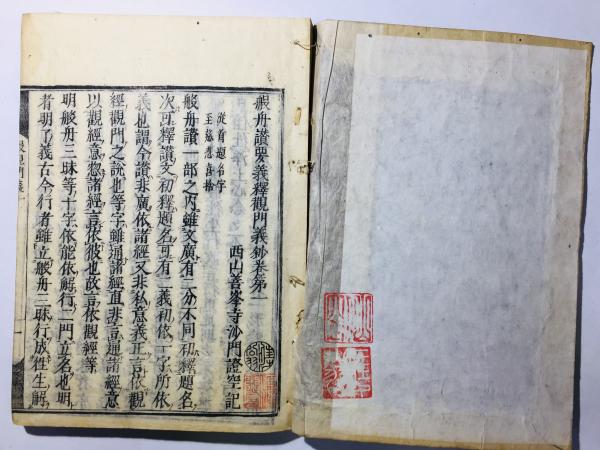 般舟讃要義釋觀門義鈔卷第一
從首題名字
至慈悲喜捨
西山善峯寺沙門證空記
般舟讃一部之内雖文廣有二分不同初釋題名
次可釋讃文初釋題名可有二義初依一字所依觀
義也謂今讃非廣依諸經又非私意義正言依觀
經觀門之説也等字雖通諸經直非言通諸經意
以觀經意惣諸經言依彼也故言依觀經等
明般舟三昧等十字依能依解行二門立名也明
者明了義古今行者雖立般舟三昧行放徃生解